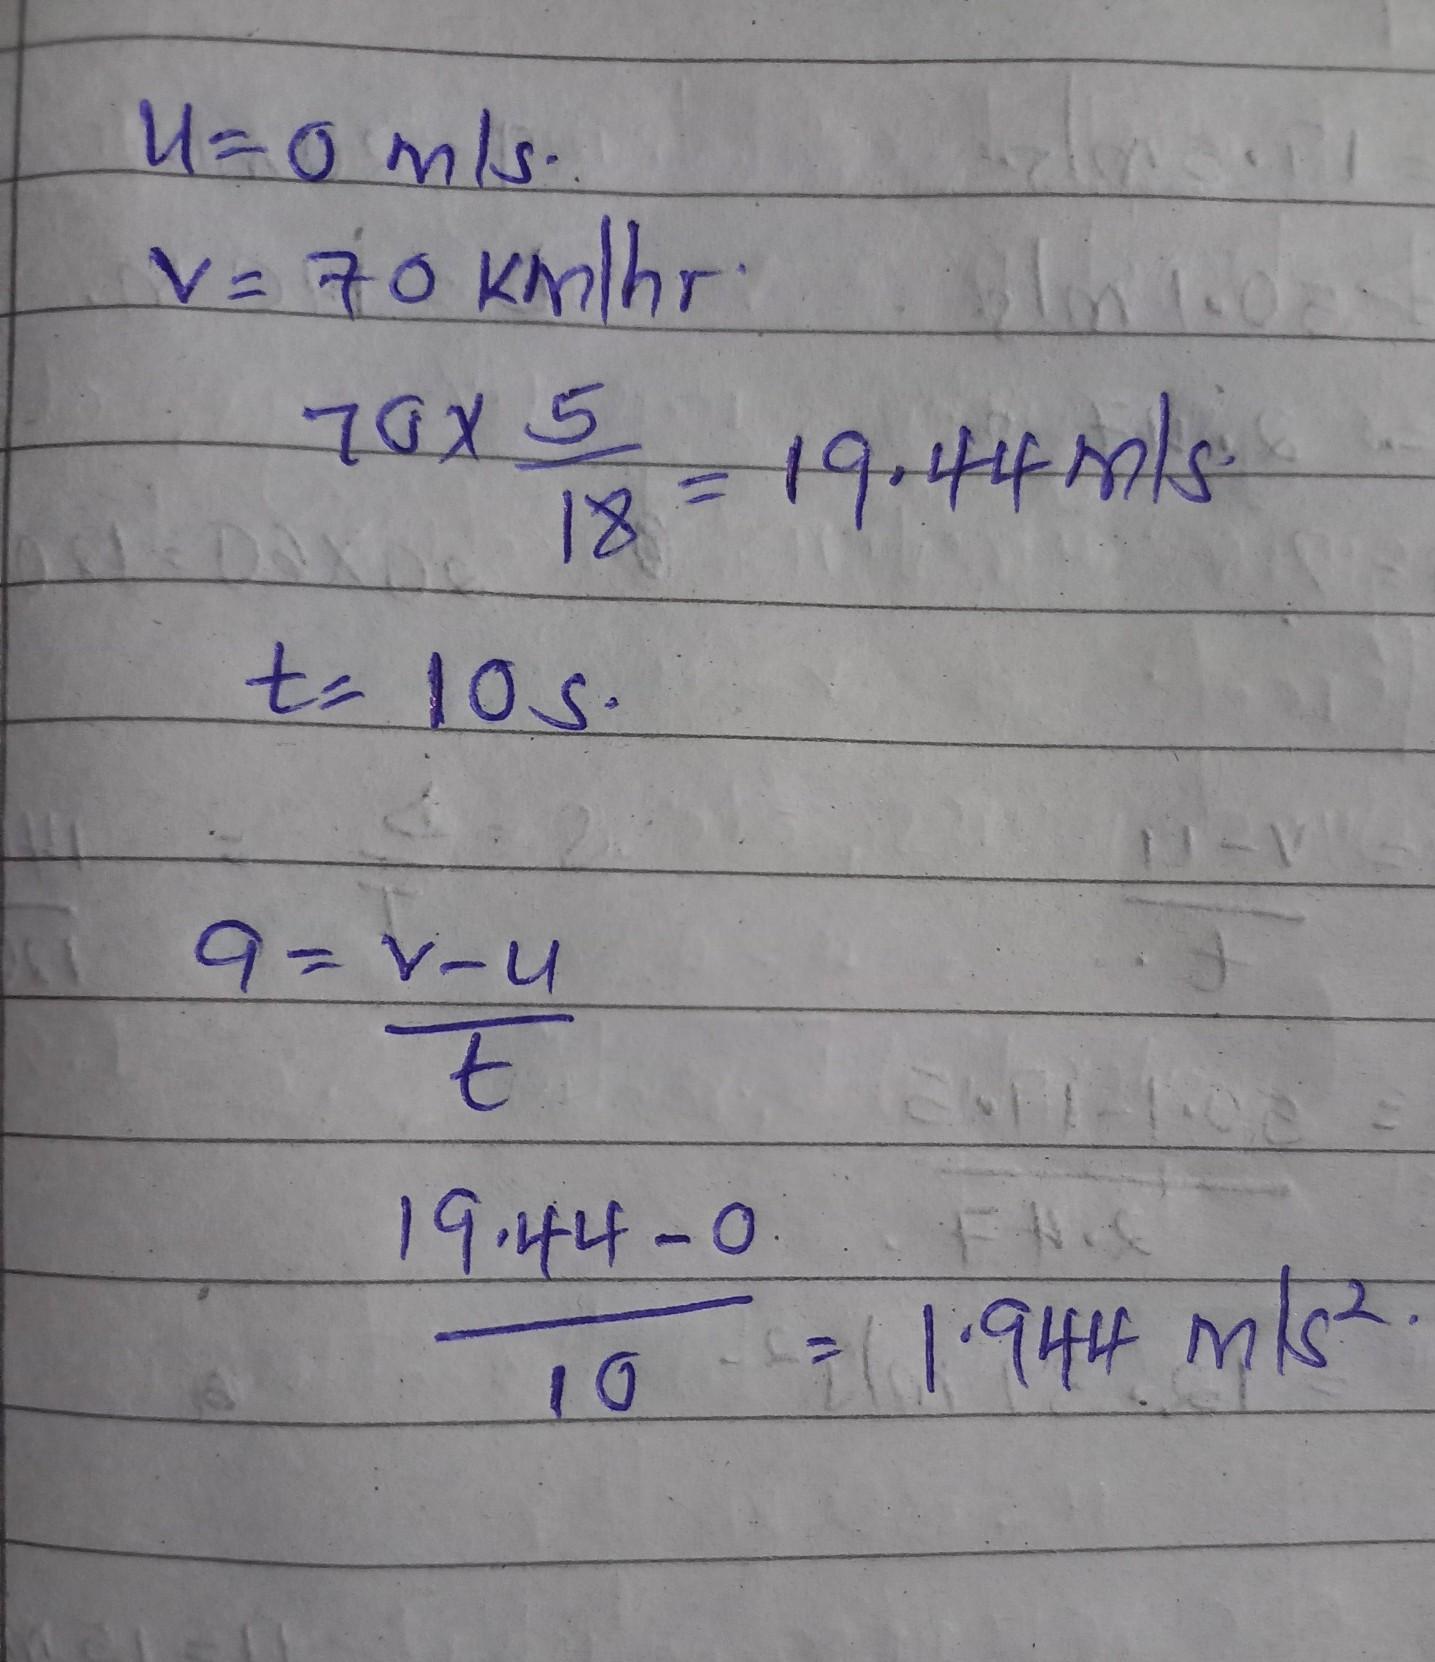 u = 0 m/s.
v = 70 km/hr.
70 x 5/18 = 19.44 m/s.
t = 10 s.
a = v-u/t
19.44 - 0/10 = 1.944 m/s².